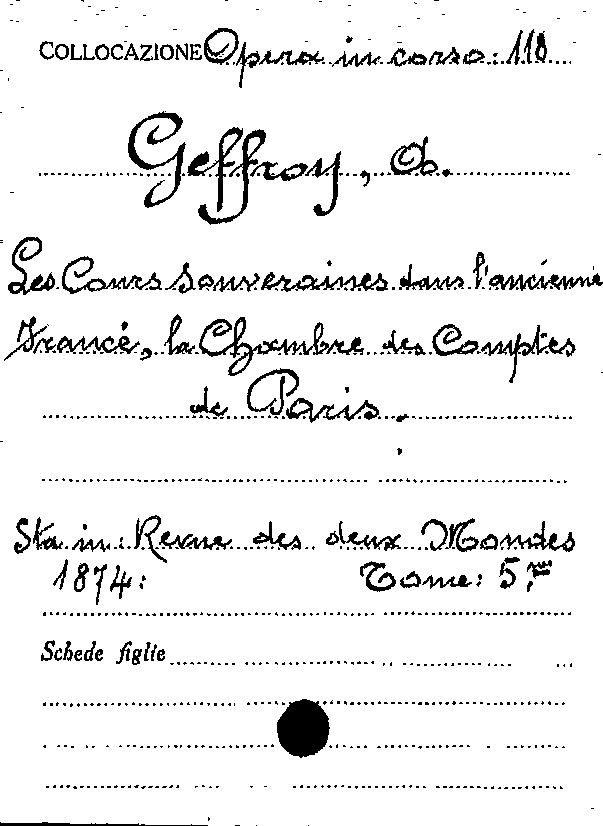 COLLOCAZIONE Opera in corso: 118
Geffroy, A.
Les Cours souveraines dans l'ancienne
France, la Chambre des Comptes
de Paris.
Sta in: Revue des deux Mondes
1874: Tome: 5.me
Schede figlie